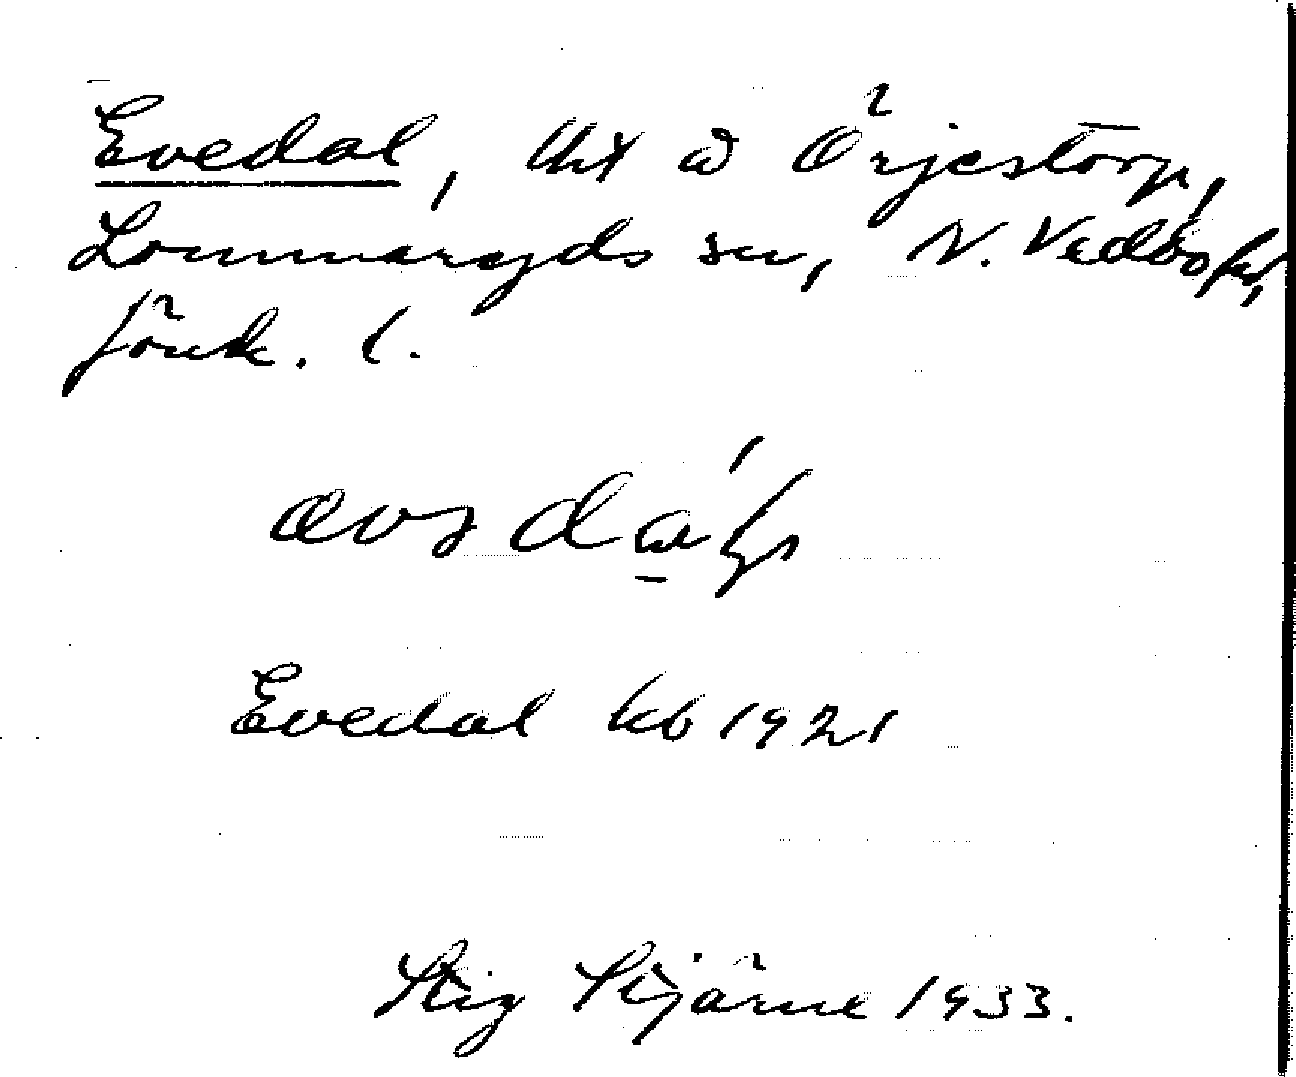 Evedal, tht å Örjestorp,
Lommaryds sn, N. Vedbo hd,
Jönk. l.
Evedal kb 1921
Stig Stjärne 1933.